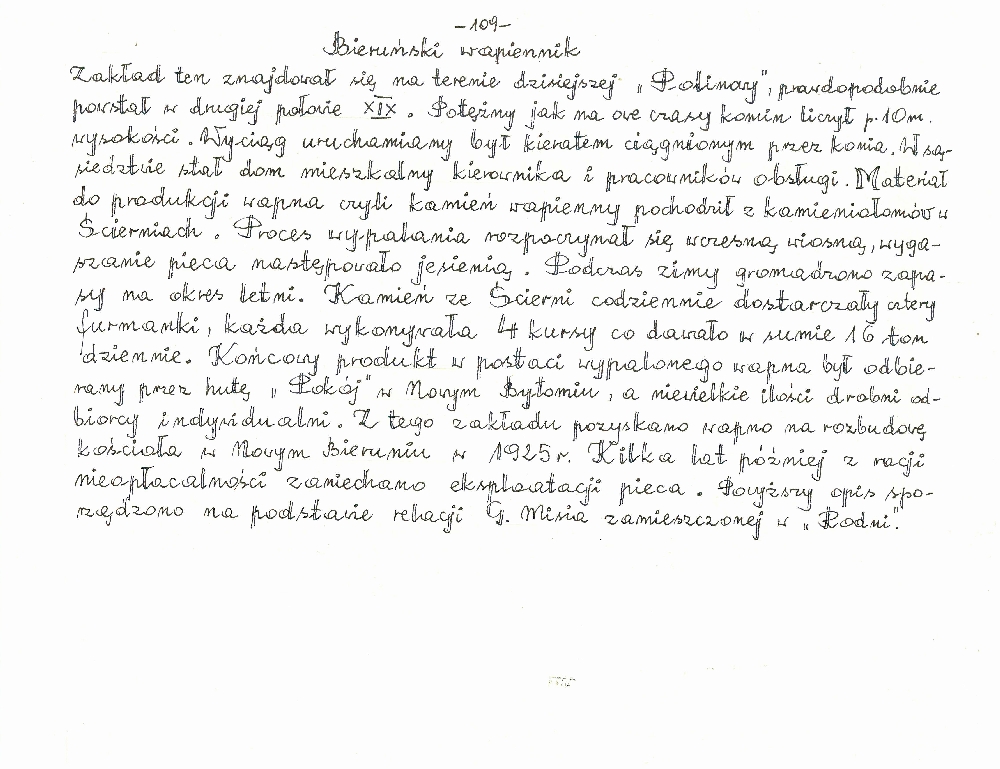 -109-
Bieruński wapiennik
Zakład ten znajdował się na terenie dzisiejszej „Polinary", prawdopodobnie
powstał w drugiej połowie XIX. Potężny jak na owe czasy komin liczył p. 10 m.
wysokości. Wyciąg uruchamiany był kieratem ciągnionym przez konia. W są-
siedztwie stał dom mieszkalny kierownika i pracowników obsługi. Materiał
do produkcji wapna czyli kamień wapienny pochodził z kamieniołomów w
Ścierniach. Proces wypalania rozpoczynał się wczesną wiosną, wyga-
szanie pieca następowało jesienią. Podczas zimy gromadzono zapa-
sy na okres letni. Kamień ze Ścierni codziennie dostarczały cztery
furmanki, każda wykonywała 4 kursy co dawało w sumie 16 ton
dziennie. Końcowy produkt w postaci wypalonego wapna był odbie-
rany przez hutę „Pokój" w Nowym Bytomiu, a niewielkie ilości drobni od-
biorcy indywidualni. Z tego zakładu pozyskano wapno na rozbudowę
kościoła w Nowym Bieruniu w 1925 r. Kilka lat później z racji
nieopłacalności zaniechano eksploatacji pieca. Powyższy opis spo-
rządzono na podstawie relacji G. Misia zamieszczonej w „Rodni".